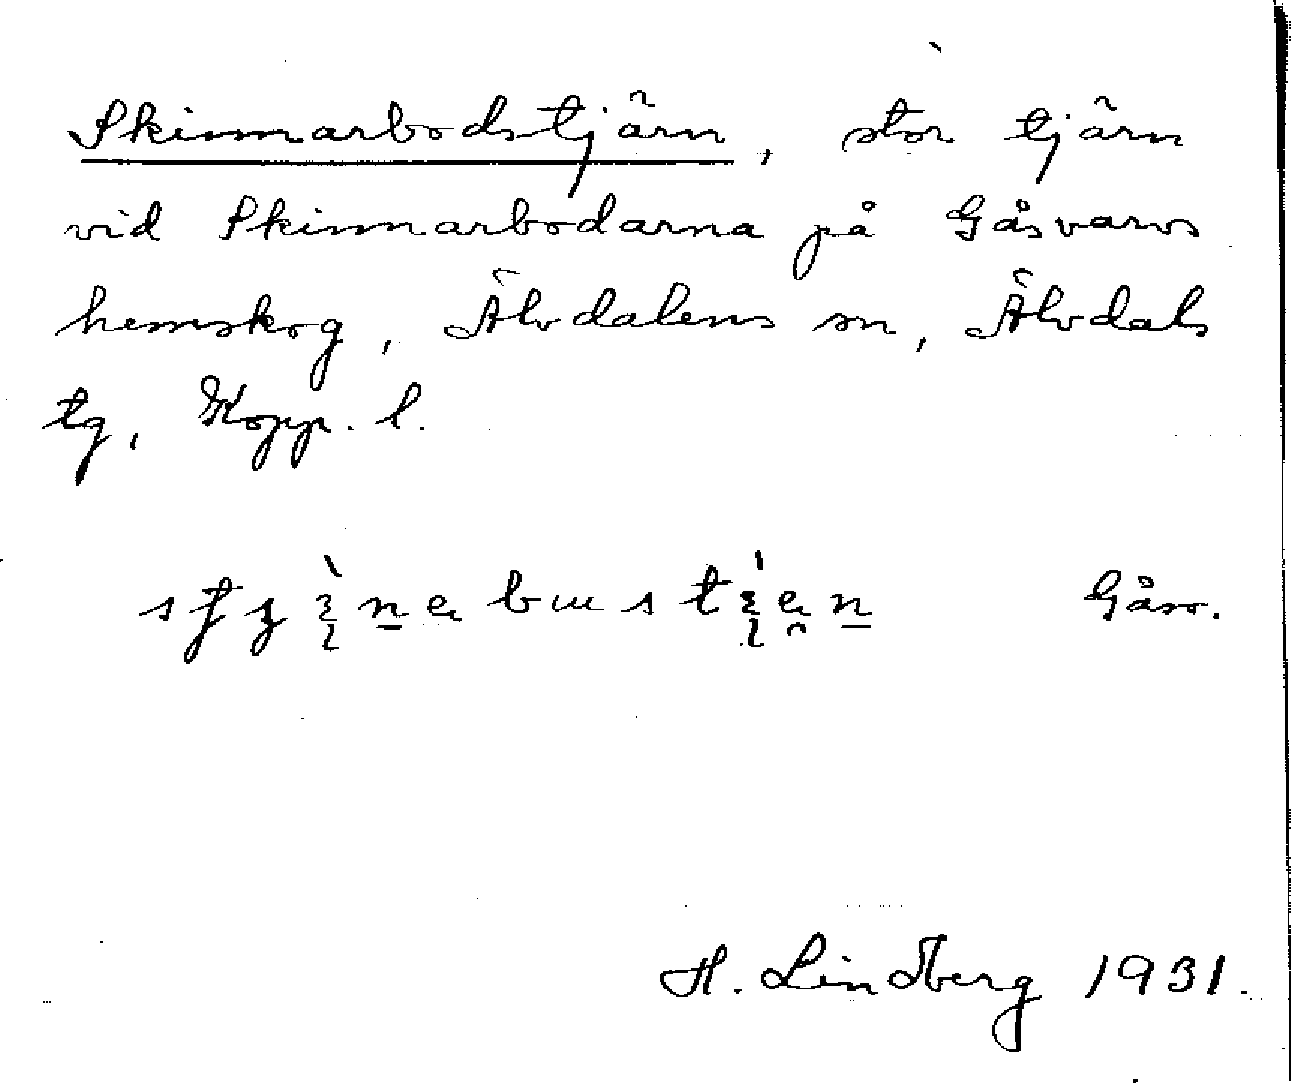 Skinnarbodstjärn, stor tjärn
vid Skinnarbodarna på Gåsvarvs
hemskog, Älvdalens sn, Älvdals
tg, Kopp. l.
Gåsv.
H. Lindberg 1931.